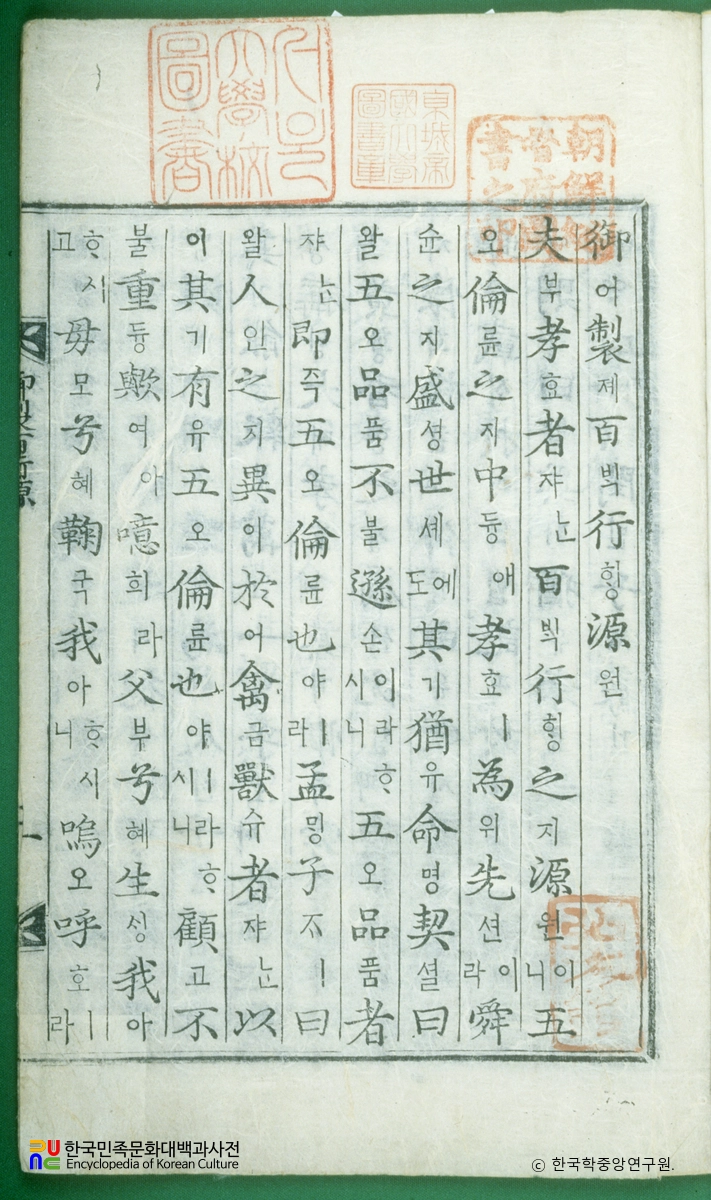 서울大學校圖書
京城帝國大學圖書章
朝鮮總督府圖書之印
御어製졔百ᄇᆡᆨ行ᄒᆡᆼ源원
夫부孝효者쟈ᄂᆞᆫ百ᄇᆡᆨ行ᄒᆡᆼ之지源원이니五
오倫륜之지中듕애孝효ㅣ為위先션이라舜
슌之지盛셩世셰에도其기猶유命명契셜曰
왈五오品품不불遜손이라ᄒᆞ시니五오品품者
쟈ᄂᆞᆫ即즉五오倫륜也야ㅣ라孟ᄆᆡᆼ子ᄌᆞㅣ曰
왈人인之지異이於어禽금獸슈者쟈ᄂᆞᆫ以
이其기有유五오倫륜也야ㅣ라ᄒᆞ시니顧고不
불重듕歟여아噫희라父부兮혜生ᄉᆡᆼ我아
ᄒᆞ시고毋모兮혜鞠국我아ᄒᆞ시니嗚오呼호ㅣ라
御製百行源
한국민족문화대백과사전
Encyclopedia of Korean Culture
ⓒ 한국학중앙연구원.